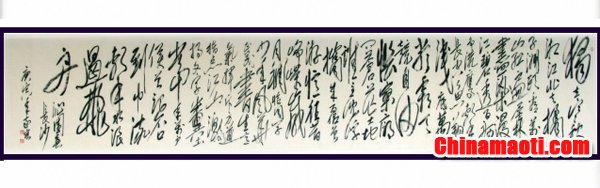 独立寒秋
湘江北去橘
子洲头看万
山红遍层林
尽染漫
江碧透百舸
争流鹰击
长空鱼翔
浅底万类
霜天竞
自由
怅寥廓
问苍茫大地
谁主沉浮
携来百侣曾
游忆往昔
峥嵘岁
月稠恰同学
少年风华
正茂书生
意气挥斥方遒
指点江山激
扬文字粪土
当年万户
侯曾记否
到中流
击水浪
遏飞
舟
沁园春
长沙
Chinamaoti.com